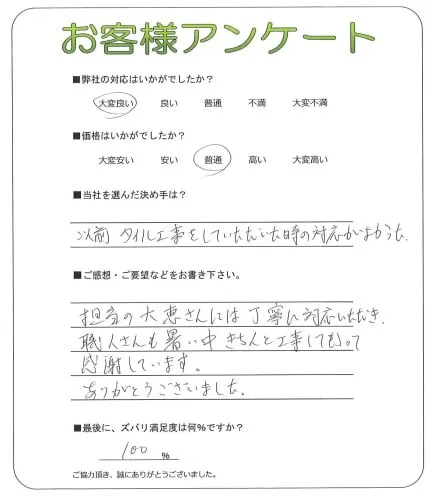 お客様アンケート
■弊社の対応はいかがでしたか?
大変良い 良い 普通 不満 大変不満
■価格はいかがでしたか?
大変安い 安い 普通 高い 大変高い
■当社を選んだ決め手は?
以前 タイル工事をしていただいた時の対応がよかった.
■ご感想・ご要望などをお書き下さい。
担当の大恵さんには丁寧に対応いただき.
職人さんも暑い中きちんと工事してもらって
感謝しています。
ありがとうございました.
■最後に、ズバリ満足度は何%ですか?
100 %
ご協力頂き、誠にありがとうございました。